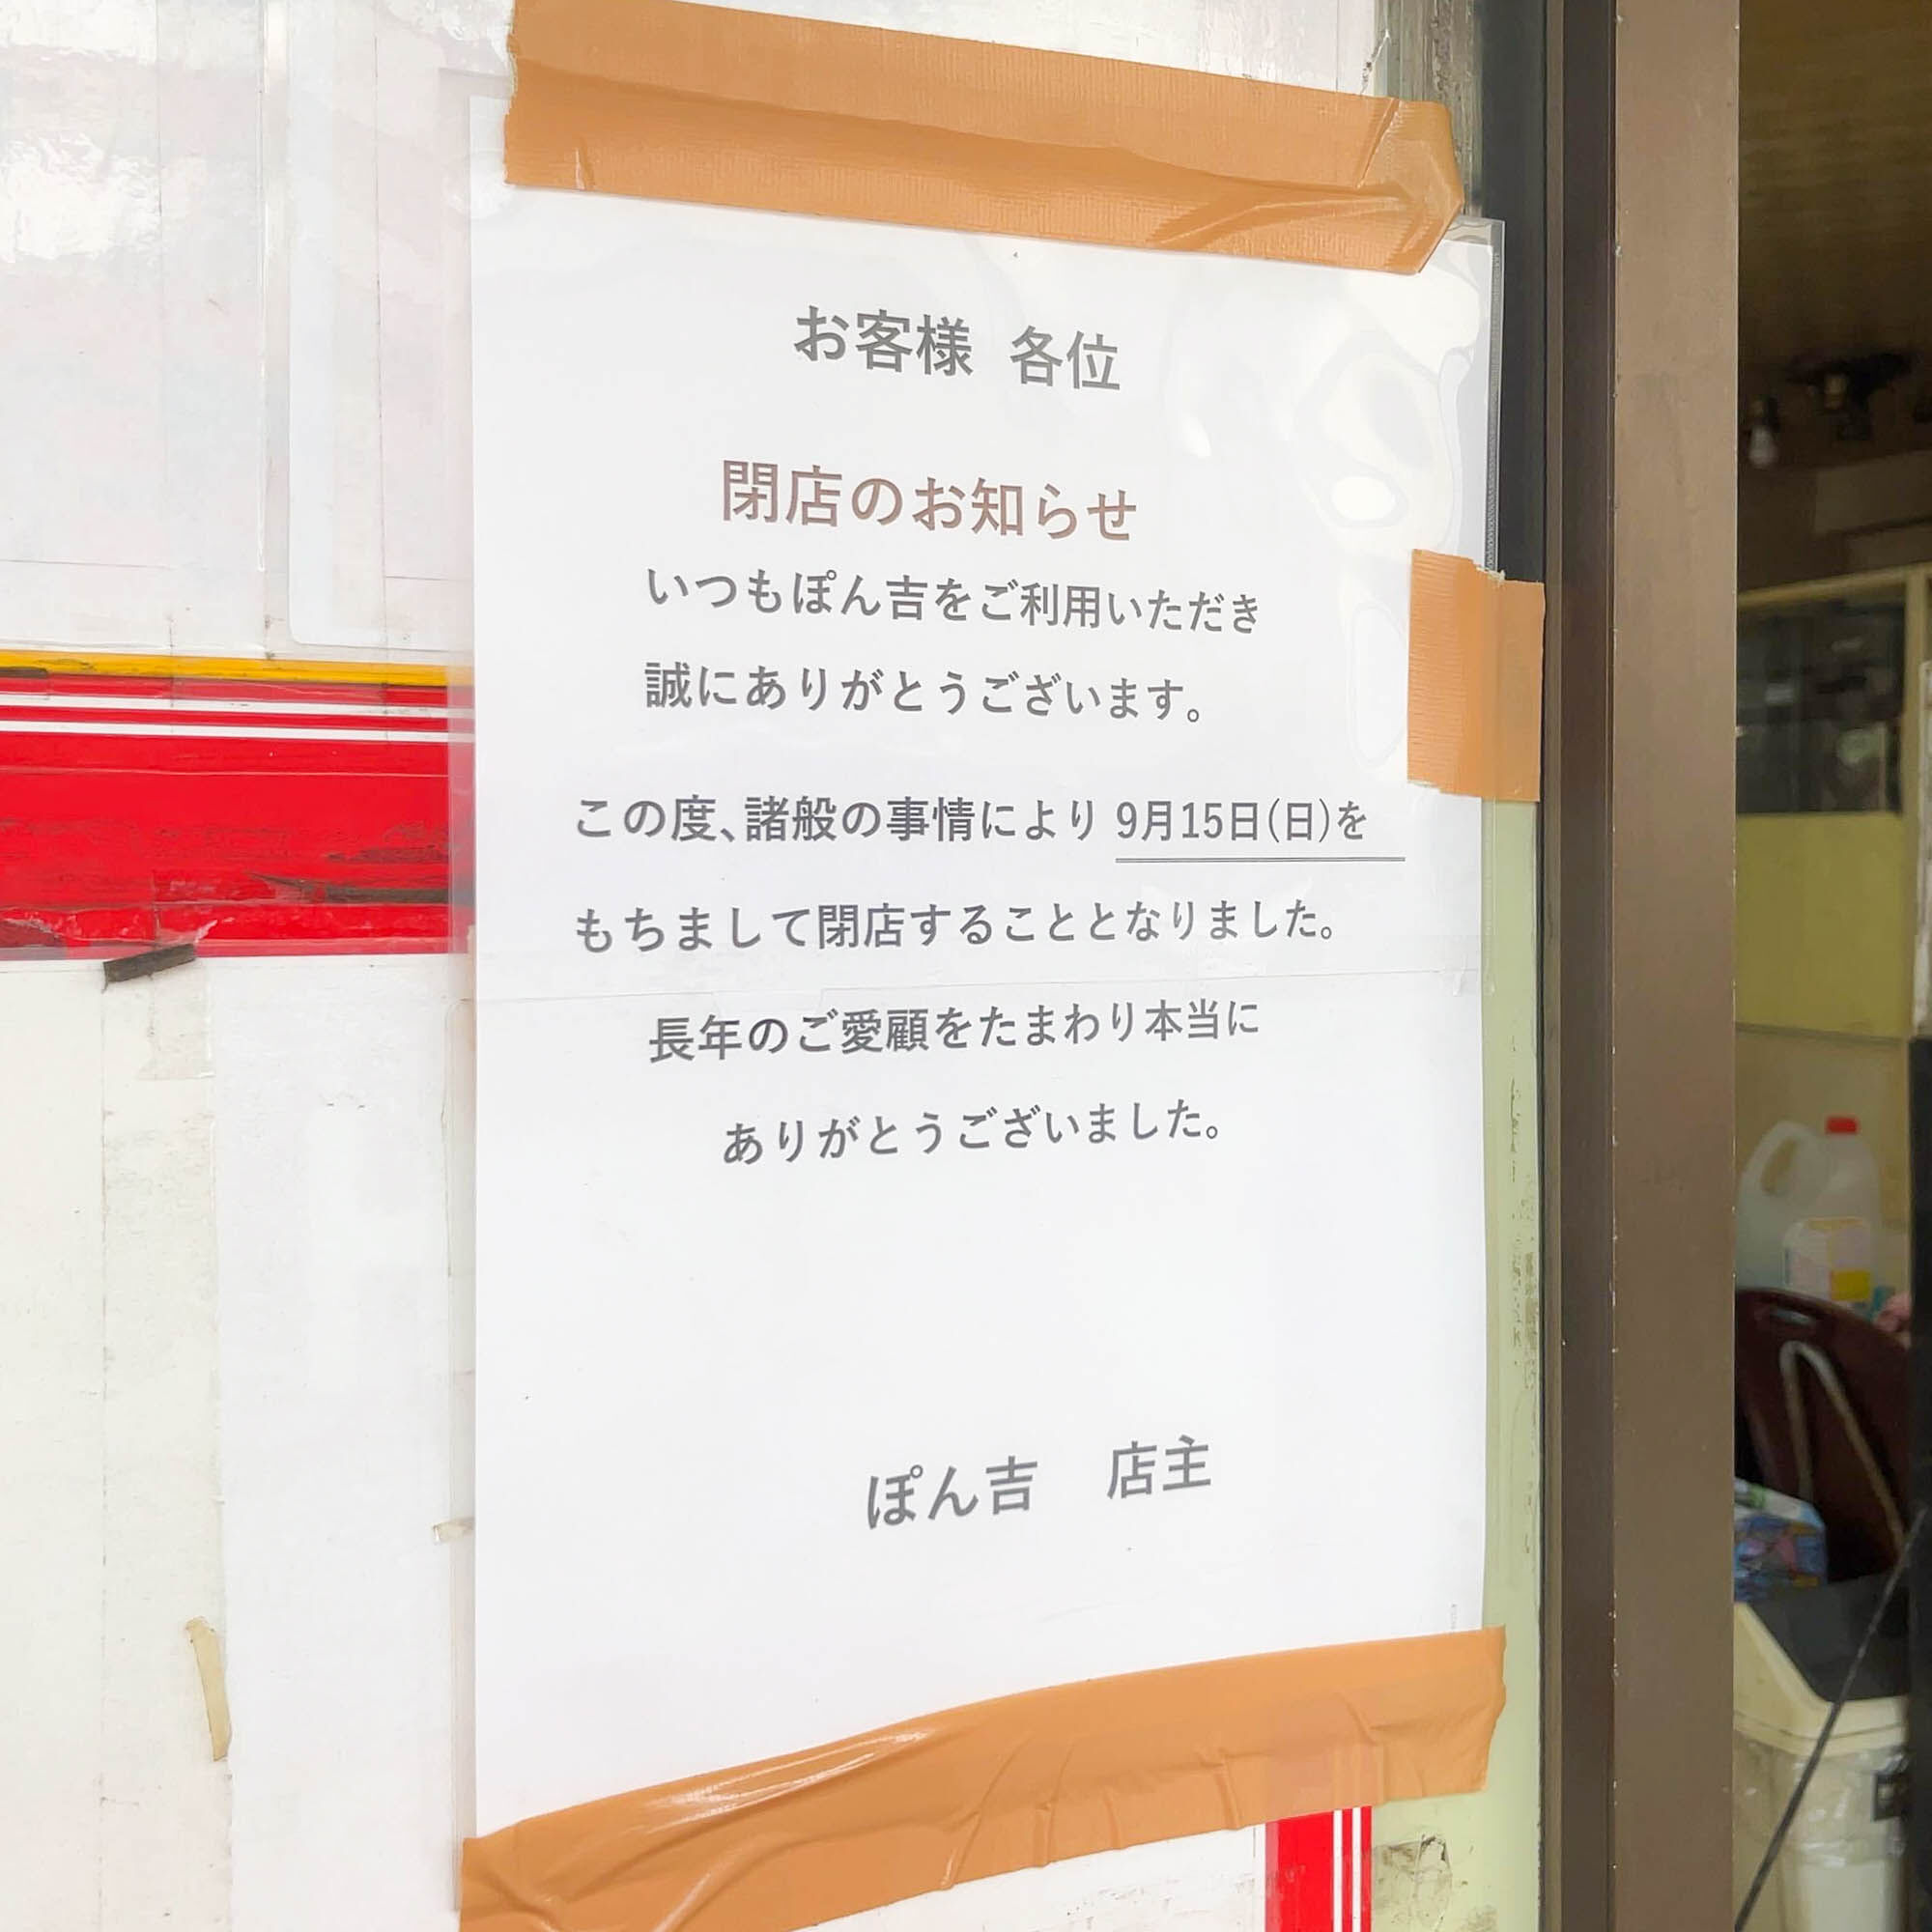 お客様 各位
閉店のお知らせ
いつもぽん吉をご利用いただき
誠にありがとうございます。
この度、諸般の事情により 9月15日(日)を
もちまして閉店することとなりました。
長年のご愛顧をたまわり本当に
ありがとうございました。
ぽん吉 店主